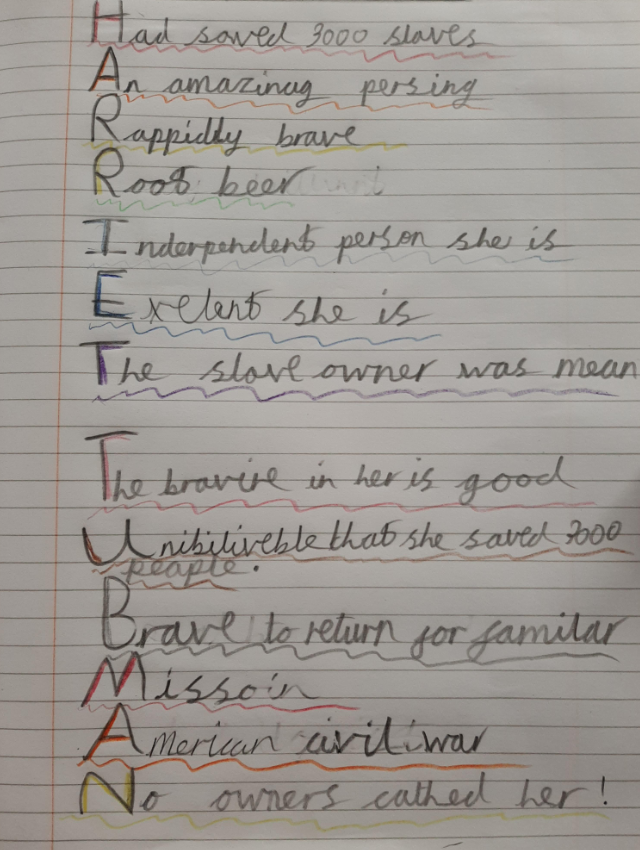 Had saved 3000 slaves
An amazinug persing
Rappidly brave
Root beer
Inderpendent person she is
Exelent she is
The slave owner was mean
The bravire in her is good
Unibiliveble that she saved 3000
peaple.
Brave to return for familar
Missoin
American civil war
No owners cathed her!